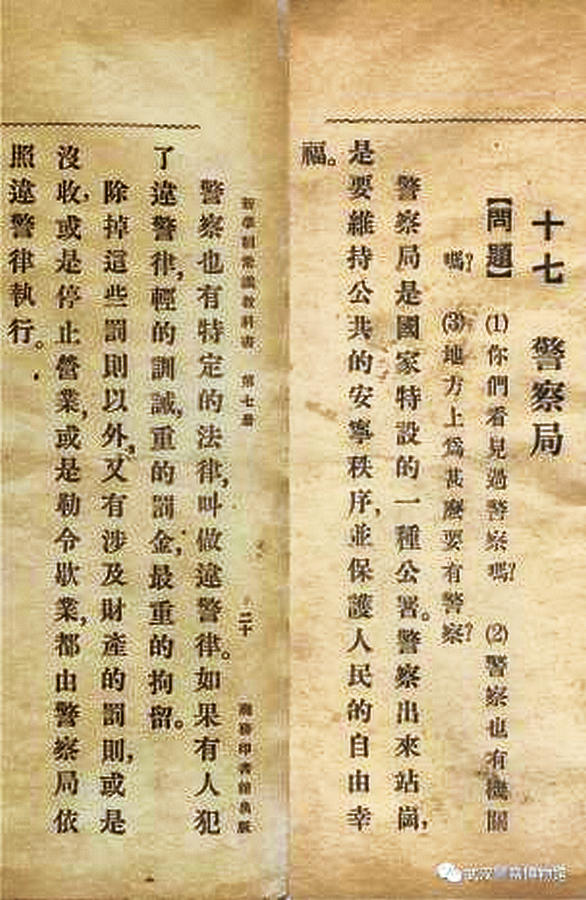 十七 警察局
【問題】 ⑴你們看見過警察嗎？ ⑵警察也有機關
嗎？ ⑶地方上爲甚麼要有警察？
警察局是國家特設的一種公署。警察出來站崗，
是要維持公共的安寧秩序，並保護人民的自由幸
福。
新學制常識教科書 第七册 二十 商務印書館出版
警察也有特定的法律，叫做違警律。如果有人犯
了違警律，輕的訓誡，重的罰金，最重的拘留。
除掉這些罰則以外，又有涉及財產的罰則，或是
沒收，或是停止營業，或是勒令歇業，都由警察局依
照違警律執行。
武汉警察博物馆